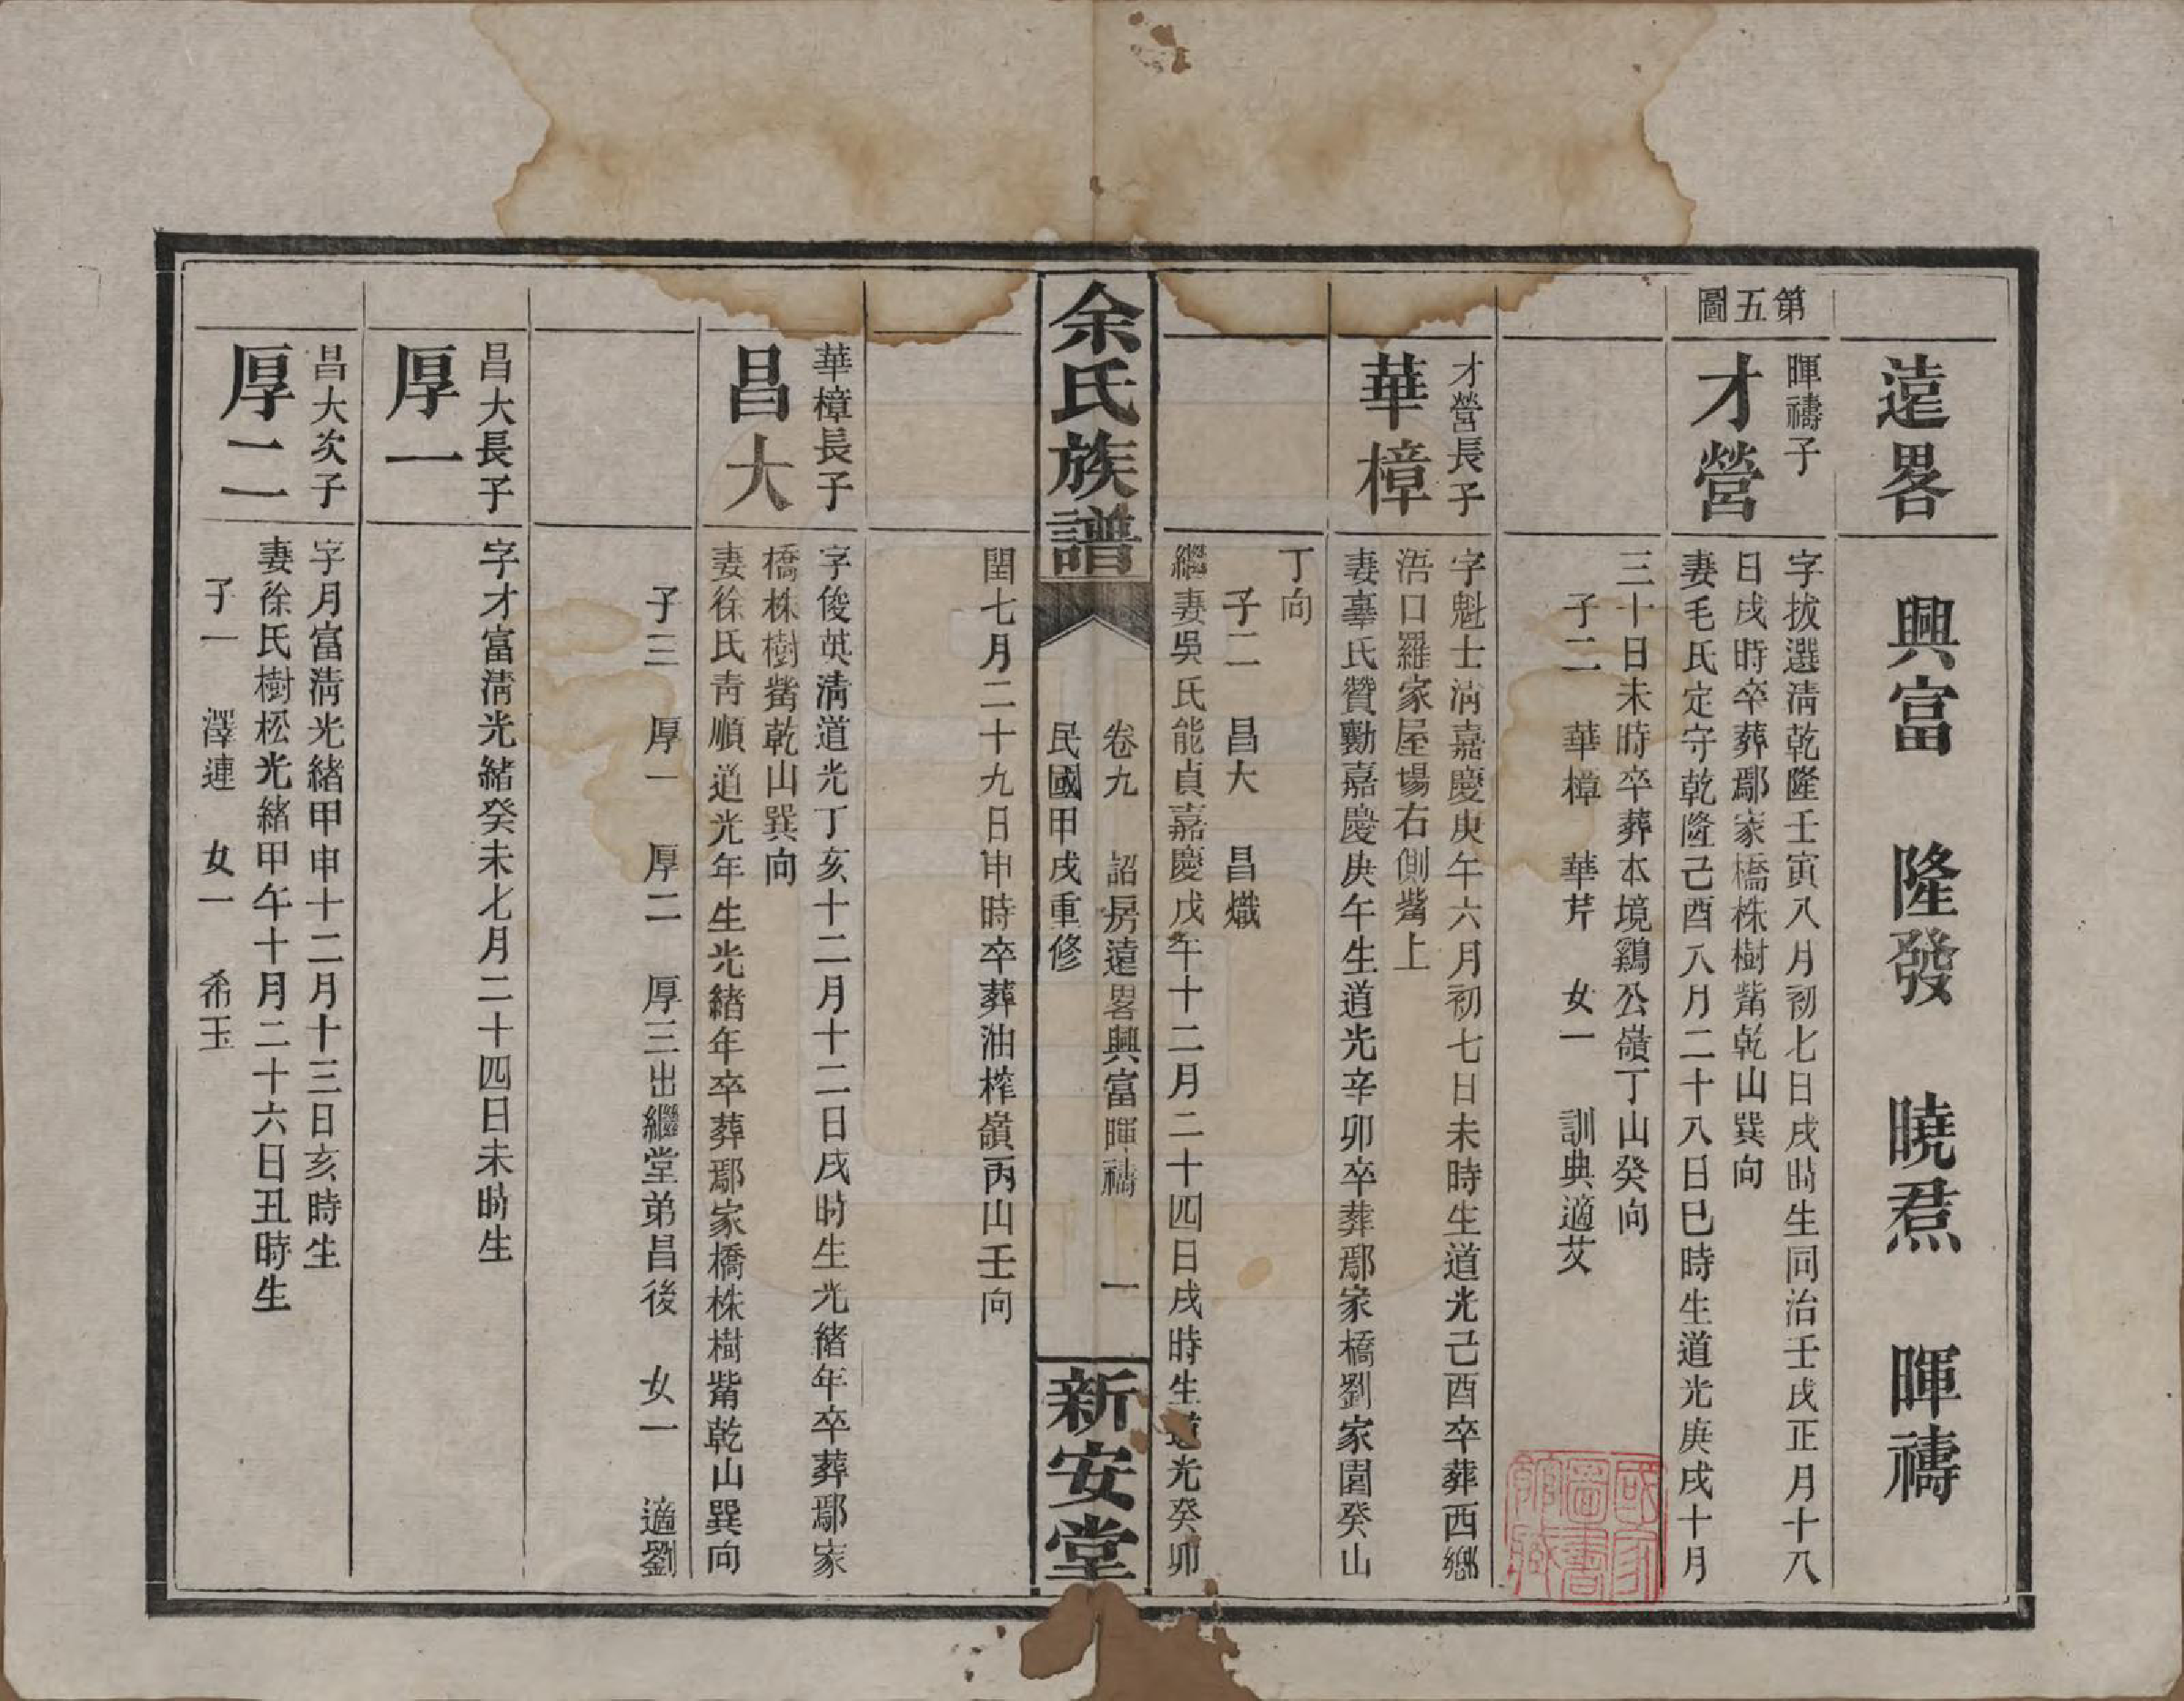 遠畧　興富　隆發　曉焄　暉禱
第五圖
暉禱子
才營
字拔選清乾隆壬寅八月初七日戌時生同治壬戌正月十八
日戌時卒葬鄢家橋株樹觜乾山巽向
妻毛氏定守乾隆己酉八月二十八日巳時生道光庚戌十月
三十日未時卒葬本境鷄公嶺丁山癸向
子二　華樟　華芹　女一　訓典適艾
才營長子
華樟
字魁士清嘉慶庚午六月初七日未時生道光己酉卒葬西鄉
浯口羅家屋場右側觜上
妻辜氏贊勷嘉慶庚午生道光辛卯卒葬鄢家橋劉家園癸山
丁向
子二　昌大　昌熾
繼妻吳氏能貞嘉慶戊午十二月二十四日戌時生道光癸卯
余氏族譜
卷九　詔房遠畧興富暉禱　一
民國甲戌重修
新安堂
閏七月二十九日申時卒葬油榨嶺丙山壬向
華樟長子
昌大
字俊英清道光丁亥十二月十二日戌時生光緒年卒葬鄢家
橋株樹觜乾山巽向
妻徐氏青順道光年生光緒年卒葬鄢家橋株樹觜乾山巽向
子三　厚一　厚二　厚三出繼堂弟昌後　女一　適劉
昌大長子
厚一
字才富清光緒癸未七月二十四日未時生
昌大次子
厚二
字月富清光緒甲申十二月十三日亥時生
妻徐氏樹松光緒甲午十月二十六日丑時生
子一　澤連　女一　希玉
國家
圖書
館藏